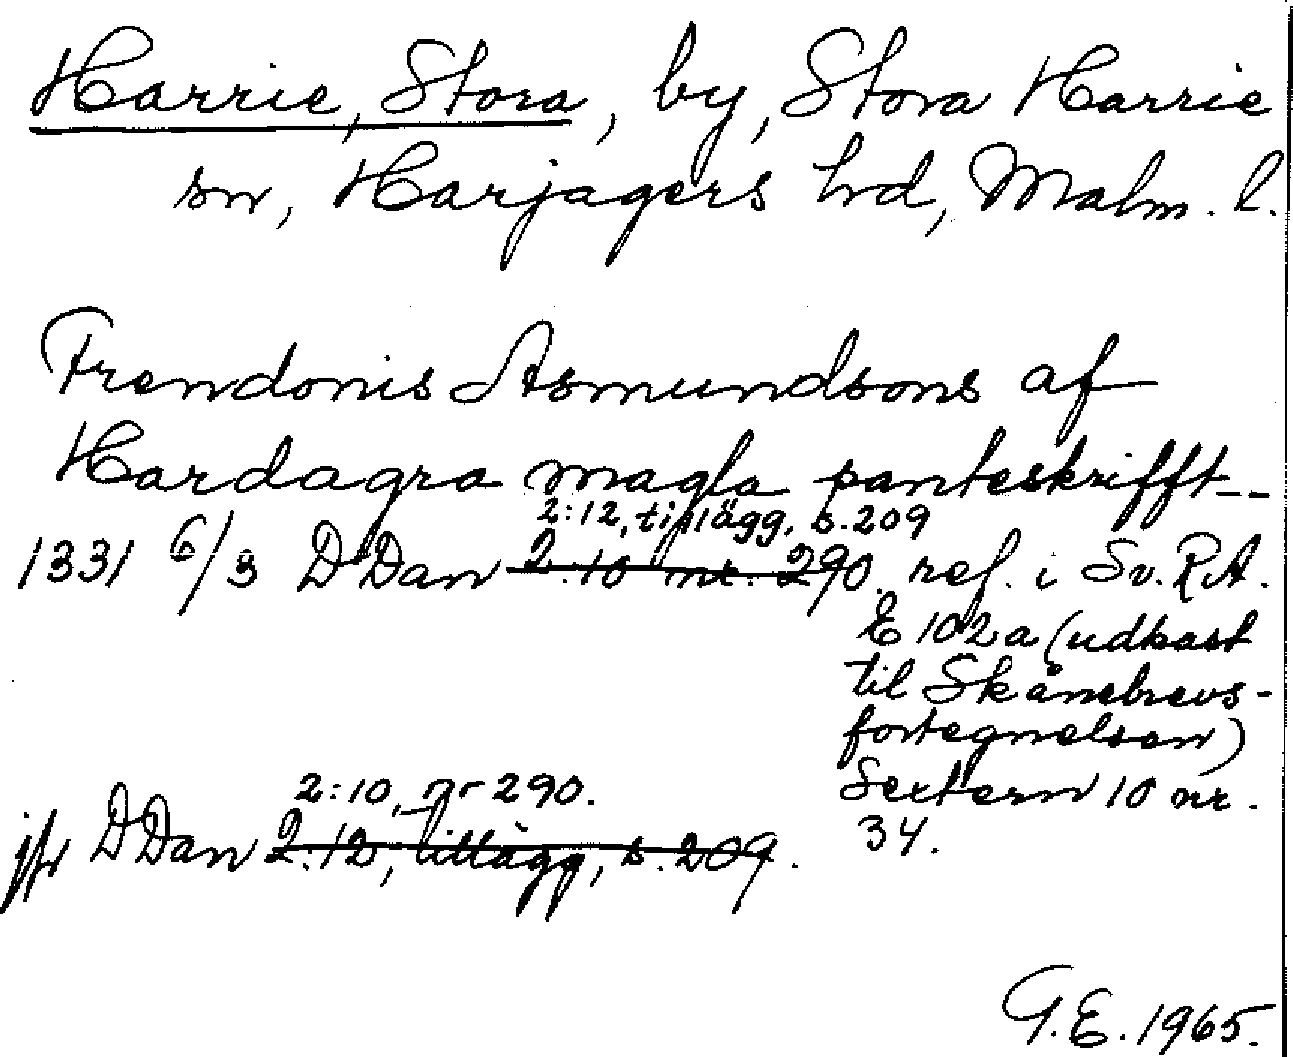 Harrie, Stora, by, Stora Harrie
sn, Harjagers hd, Malm. l.
Frendonis Asmundsons af
Hardagra magla panteskrifft--
2:12, tillägg, s. 209
1331 6/3 DDan 2:10 nr. 290. ref. i Sv. R.A.
E 102 a (udkast
til Skånebrevs-
fortegnelsen)
Sextern 10 nr.
34.
2:10, nr 290.
jfr DDan 2:12, tillägg, s. 209.
G.E. 1965.